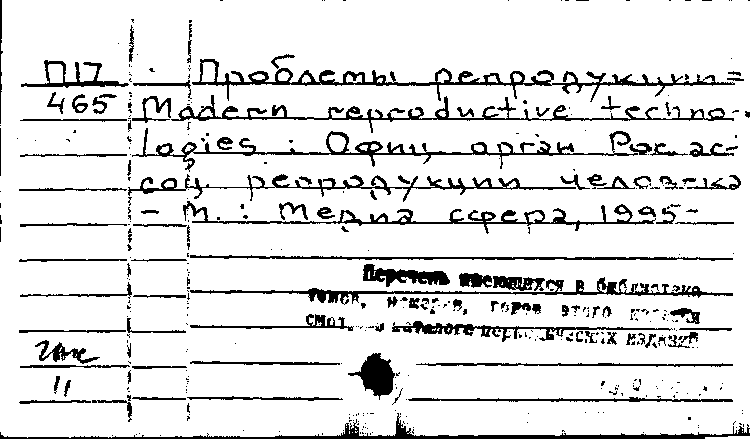 П17 Проблемы репродукции =
465 Modern reproductive techno-
logies : Офиц. орган Рос. ас-
соц. репродукции человека
- М. : Медиа сфера, 1995-
Перечень имеющихся в библиотеке
томов, номеров, годов этого издания
смот. в каталоге периодических изданий
11